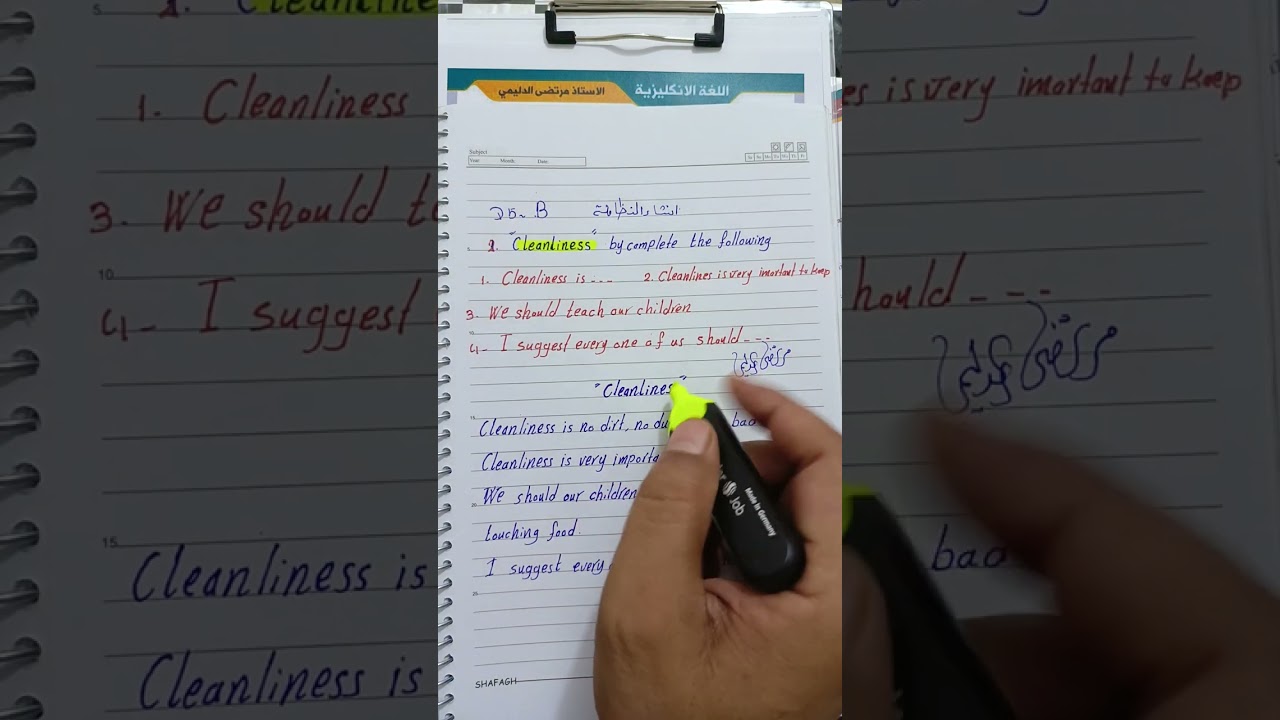 اللغة الانكليزية الاستاذ مرتضى الدليمي
Subject
Year Month Date
Sa Su Mo Tu We Th Fr
Q5- B انشاء النظافة
1. "Cleanliness" by complete the following
1. Cleanliness is --- 2. Cleanlines is very imortant to keep
3. We should teach our children
4- I suggest every one of us should ---
مرتضى الدليمي
"Cleanliness"
Cleanliness is no dirt, no du bad
Cleanliness is very importa
We should our children
touching food.
I suggest every
Job
Made in Germany
SHAFAGH